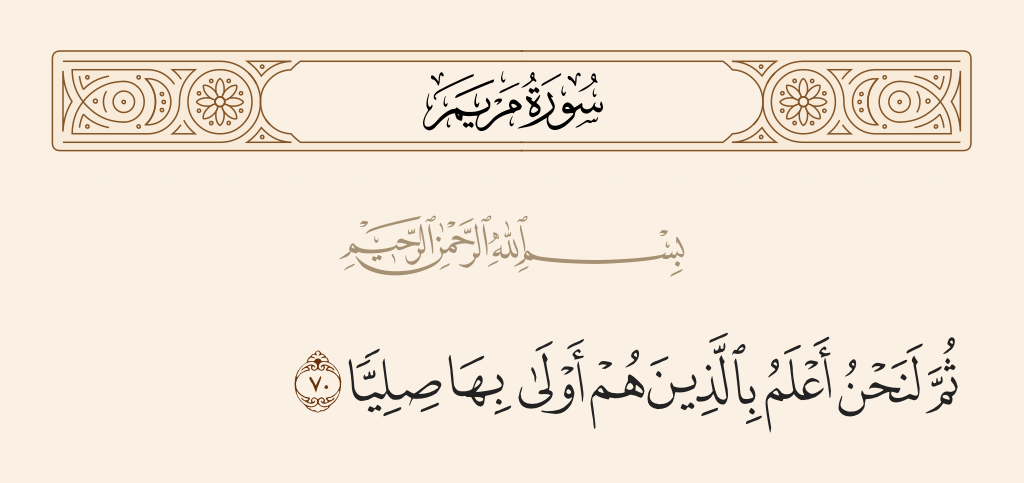 سُورَةُ مَرْيَمَ
بِسْمِ ٱللَّهِ ٱلرَّحْمَٰنِ ٱلرَّحِيمِ
ثُمَّ لَنَحْنُ أَعْلَمُ بِٱلَّذِينَ هُمْ أَوْلَىٰ بِهَا صِلِيًّا ٧٠